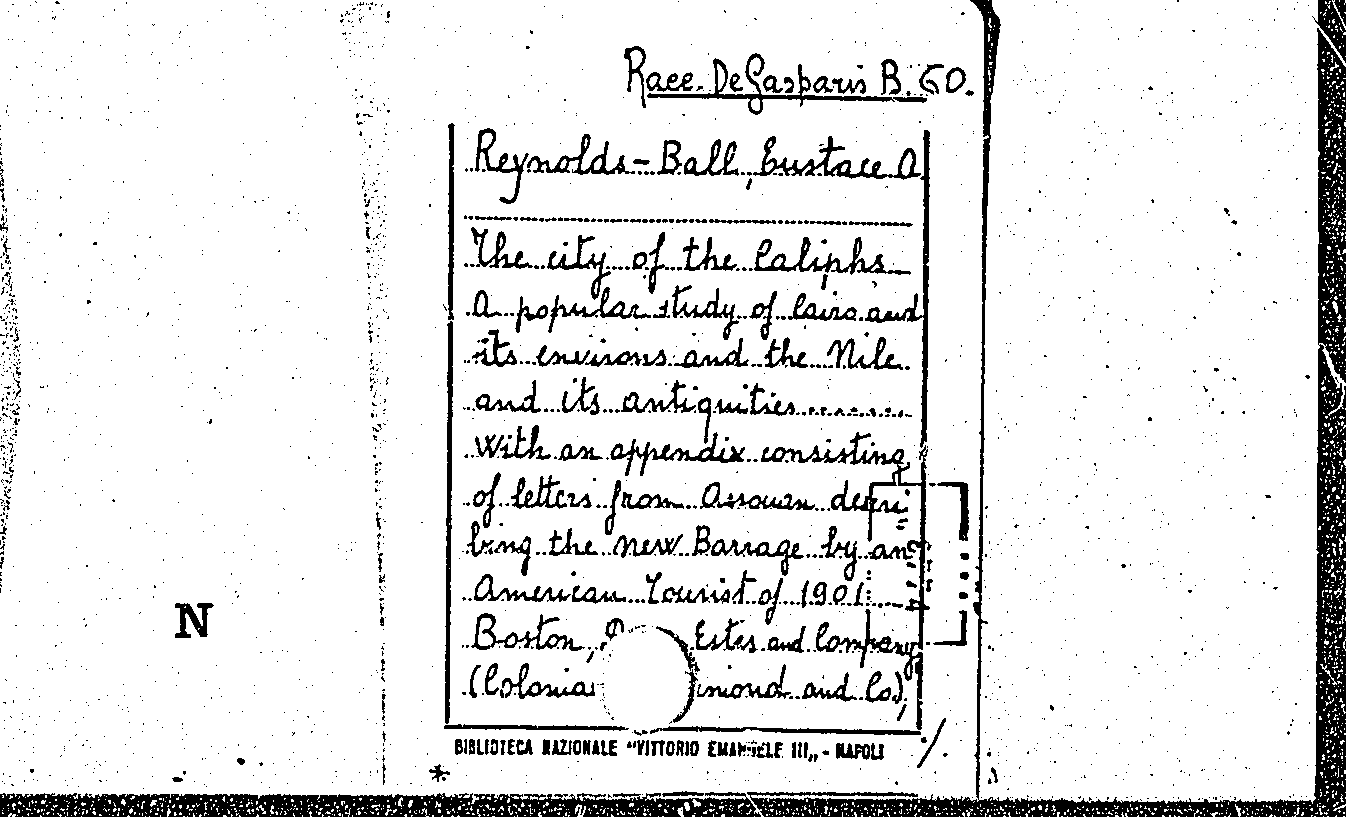 Racc. De Gasparis B. 60.
Reynolds-Ball, Eustace A
The city of the Caliphs
A popular study of Cairo and
its environs and the Nile
and its antiquities........
With an appendix consisting
of letters from Assouan descri=
bing the new Barrage by an
American Tourist of 1901
Boston, Estes and Company
(Colonial and Co),
BIBLIOTECA NAZIONALE "VITTORIO EMANUELE III„ - NAPOLI
N